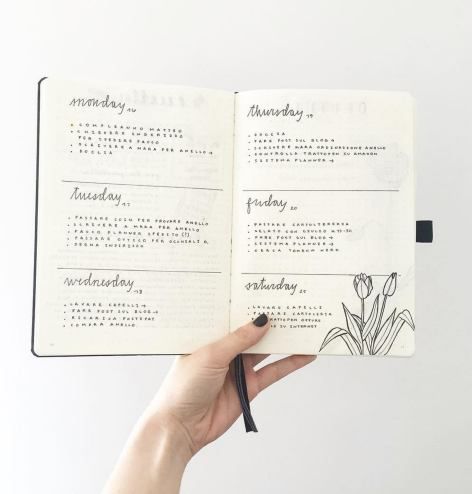 monday 16
• COMPLEANNO MATTEO
• CHIEDERE INDIRIZZO
PER SPEDIRE PACCO
• SCRIVERE A MARA PER ANELLO →
• DOCCIA
tuesday 17
• PASSARE COSO PER PROVARE ANELLO
• SCRIVERE A MARA PER ANELLO
• PACCO PLANNER SPEDITO (?)
• PASSARE OTTICO PER OCCHIALI
•
wednesday 18
• LAVARE CAPELLI →
• FARE POST SUL BLOG →
• RICARICA POSTEPAY
• COMPRA ANELLO
thursday 19
• DOCCIA
• FARE POST SUL BLOG →
• SCRIVERE MARA ORDINAZIONE ANELLO
• CONTROLLA TRATTOPEN SU AMAZON
• SISTEMA PLANNER →
friday 20
• PASSARE CARTOLERIA
• GELATO CON
• FARE POST SUL BLOG →
• SISTEMA PLANNER →
• CERCA
saturday 21
• LAVARE CAPELLI
• PASSARE CARTOLERIA
TRATTOPEN OPPURE
SU INTERNET